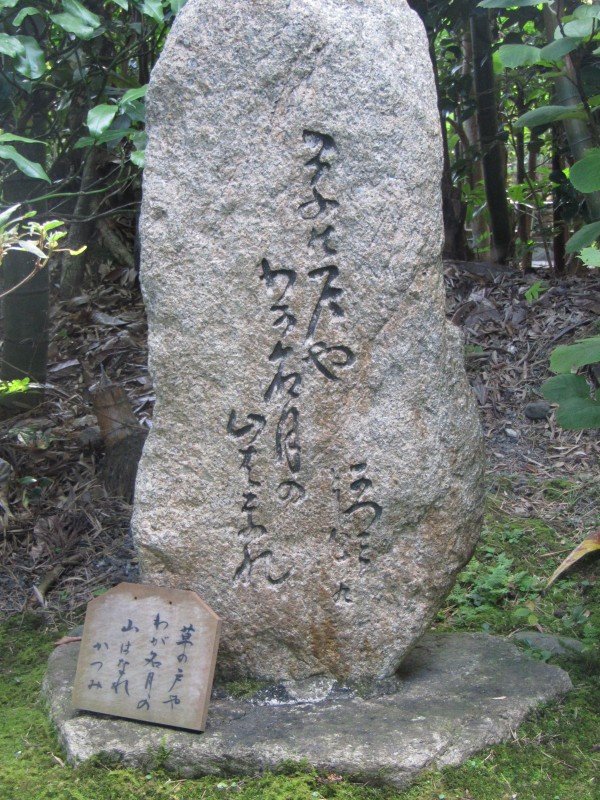 草の戸や
わか名月の
山はなれ
草の戸や
わが名月の
山はなれ
かつみ